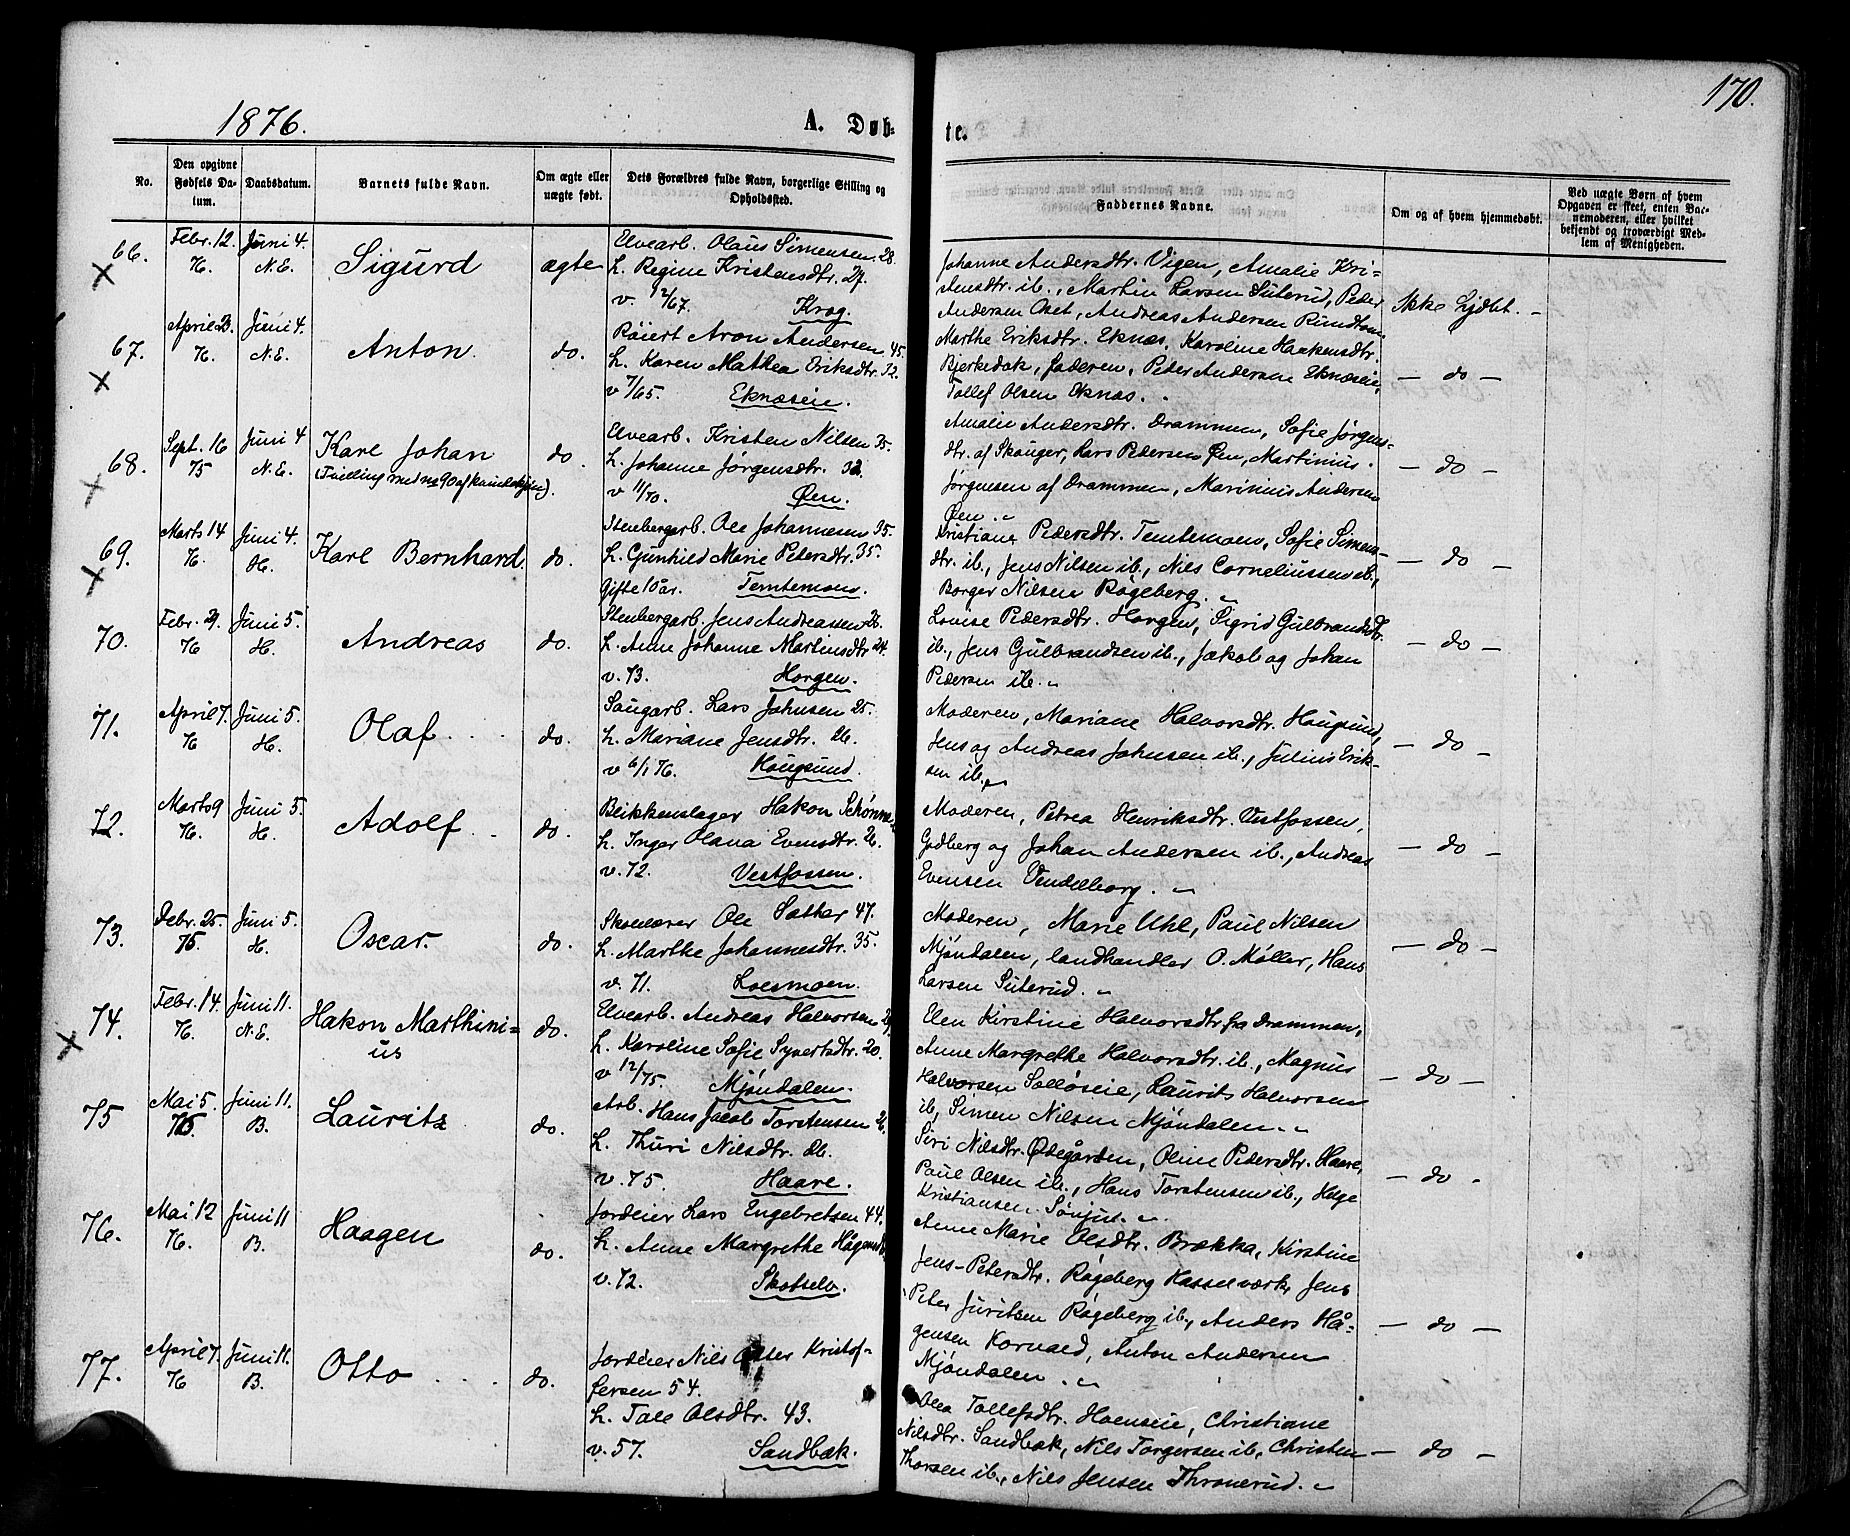 170.
1876.
A. Døb-
te.
No.
Den opgivne Fødsels Da-tum.
Daabsdatum.
Barnets fulde Navn.
Om ægte eller uægte født.
Dets Forældres fulde Navn, borgerlige Stilling og Opholdssted.
Faddernes Navne.
Om og af hvem hjemmedøbt.
Ved uægte Børn af hvem Opgaven er skeet, enten Bar-nemoderen, eller hvilket bekjendt og troværdigt Med-lem af Menigheden.
66.
Febr. 12.
76.
Juni 4.
N.E.
Sigurd
ægte
Elvearb. Olaus Simensen. 28.
h. Regine Kristensdtr. 27.
v. 12/67. Krog.
Johanne Andersdtr. Vigen, Amalie Kri-
stensdtr. ib., Martin Larsen Suterud, Peder
Andersen Oset, Andreas Andersen Rundtom.
Ikke hjdbt. -
67.
April 23.
76.
Juni 4.
N.E.
Anton.
do.
Røiert Aron Andersen 45.
h. Karen Mathea Eriksdtr. 32.
v 7/65. Eknæseie.
Marthe Eriksdtr. Eknæs, Karoline Haakensdtr.
Bjerkedok, faderen, Peder Andersen Eknæseie,
Tollef Olsen Eknæs.
- do -
68.
Sept. 16
75
Juni 4
N.E.
Karl Johan
(Tvilling med no 90 af kvindekjøn).
do.
Elvearb. Kristen Nilsen 35.
h. Johanne Jørgensdtr. 32.
v 11/70. Øen.
Amalie Andersdtr. Drammen, Sofie Jørgens-
dtr. af Skouger, Lars Pedersen Øen, Martinius
Jørgensen af Drammen, Marinius Andersen
Øen.
- do -
69.
Marts 14
76.
Juni 4.
H.
Karl Bernhard
do.
Stenbergarb. Ole Johannesen 35.
h. Gunhild Marie Petersdtr. 35.
Gifte 10 år. Temtemoen.
Kristiane Pedersdtr. Temtemoen, Sofie Simens-
dtr. ib., Jens Nilsen ib., Nils Corneliussen ib.,
Borger Nilsen Røgeberg.
- do -
70.
Febr. 29.
76
Juni 5.
H.
Andreas
do.
Stenbergarb. Jens Andreassen 26.
h. Anne Johanne Martinsdtr 24.
v. 73. Horgen.
Lovise Pedersdtr. Horgen, Sigrid Gulbrandsdtr.
ib., Jens Gulbrandsen ib., Jakob og Johan
Pedersen ib.
- do -
71.
April 7.
76
Juni 5.
H.
Olaf
do.
Saugarb. Lars Johnsen 25.
h. Mariane Jensdtr. 26.
v 6/1 76. Hougsund.
Moderen, Mariane Halvorsdtr. Hougsund,
Jens og Andreas Johnsen ib., Julius Erik-
sen ib.
- do -
72.
Marts 9
76.
Juni 5.
H.
Adolf
do.
Blikkenslager Hakon
h. Inger Olava Evensdtr. 26.
v. 72. Vestfossen.
Moderen, Petrea Henriksdtr. Vestfossen,
Gudberg og Johan Andersen ib., Andreas
Evensen Vendelborg.
- do -
73.
Febr. 25
75.
Juni 5.
H.
Oscar.
do.
Skolelærer Ole Sather 47.
h. Marthe Johannesdtr. 35.
v. 71. Loesmoen.
Moderen, Marie Uhl, Paul Nilsen
Mjøndalen, landhandler O. Møller, Hans
Larsen Suterud.
- do -
74.
Febr. 14.
76.
Juni 11.
N.E.
Hakon Marthini-
us
do.
Elvearb. Andreas Halvorsen
h. Karoline Sofie Syvertsdtr. 20.
v 12/75. Mjøndalen.
Elen Kirstine Halvorsdtr fra Drammen,
Anne Margrethe Halvorsdtr. ib., Magnus
Halvorsen Solløseie, Laurits Halvorsen
ib, Simen Nilsen Mjøndalen.
- do -
75
Mai 5.
Juni 11.
B.
Lauritz
do.
Arb. Hans Jacob Torstensen
h. Thuri Nilsdtr. 26.
v. 75. Haare.
Siri Nilsdtr. Ødegården, Oline Pedersdtr. Haare,
Paul Olsen ib., Hans Torstensen ib., Helge
Kristiansen
- do -
76.
Mai 12
76.
Juni 11
B.
Haagen
do.
Jordeier Lars Engebretsen 44.
h. Anne Margrethe Hågensdtr
v. 72. Skotselv.
Anne Marie Olsdtr. Brække, Kirstine
Jens-Petersdtr. Røgeberg Hasselværk, Jens
Peter Juritsen Røgeberg ib., Anders Hå-
gensen Kornæd, Anton Andersen
Mjøndalen.
- do -
77.
April 7.
76
Juni 11.
B.
Otto
do.
Jordeier Nils Peter Kristof-
fersen 54.
h. Tale Olsdtr. 43.
v. 57. Sandbæk.
Olea Tollefsdtr. Hoenseie, Christiane
Nilsdtr. Sandbæk, Nils Torgersen ib., Christen
Thorsen ib., Nils Jensen Thronerud.
- do -